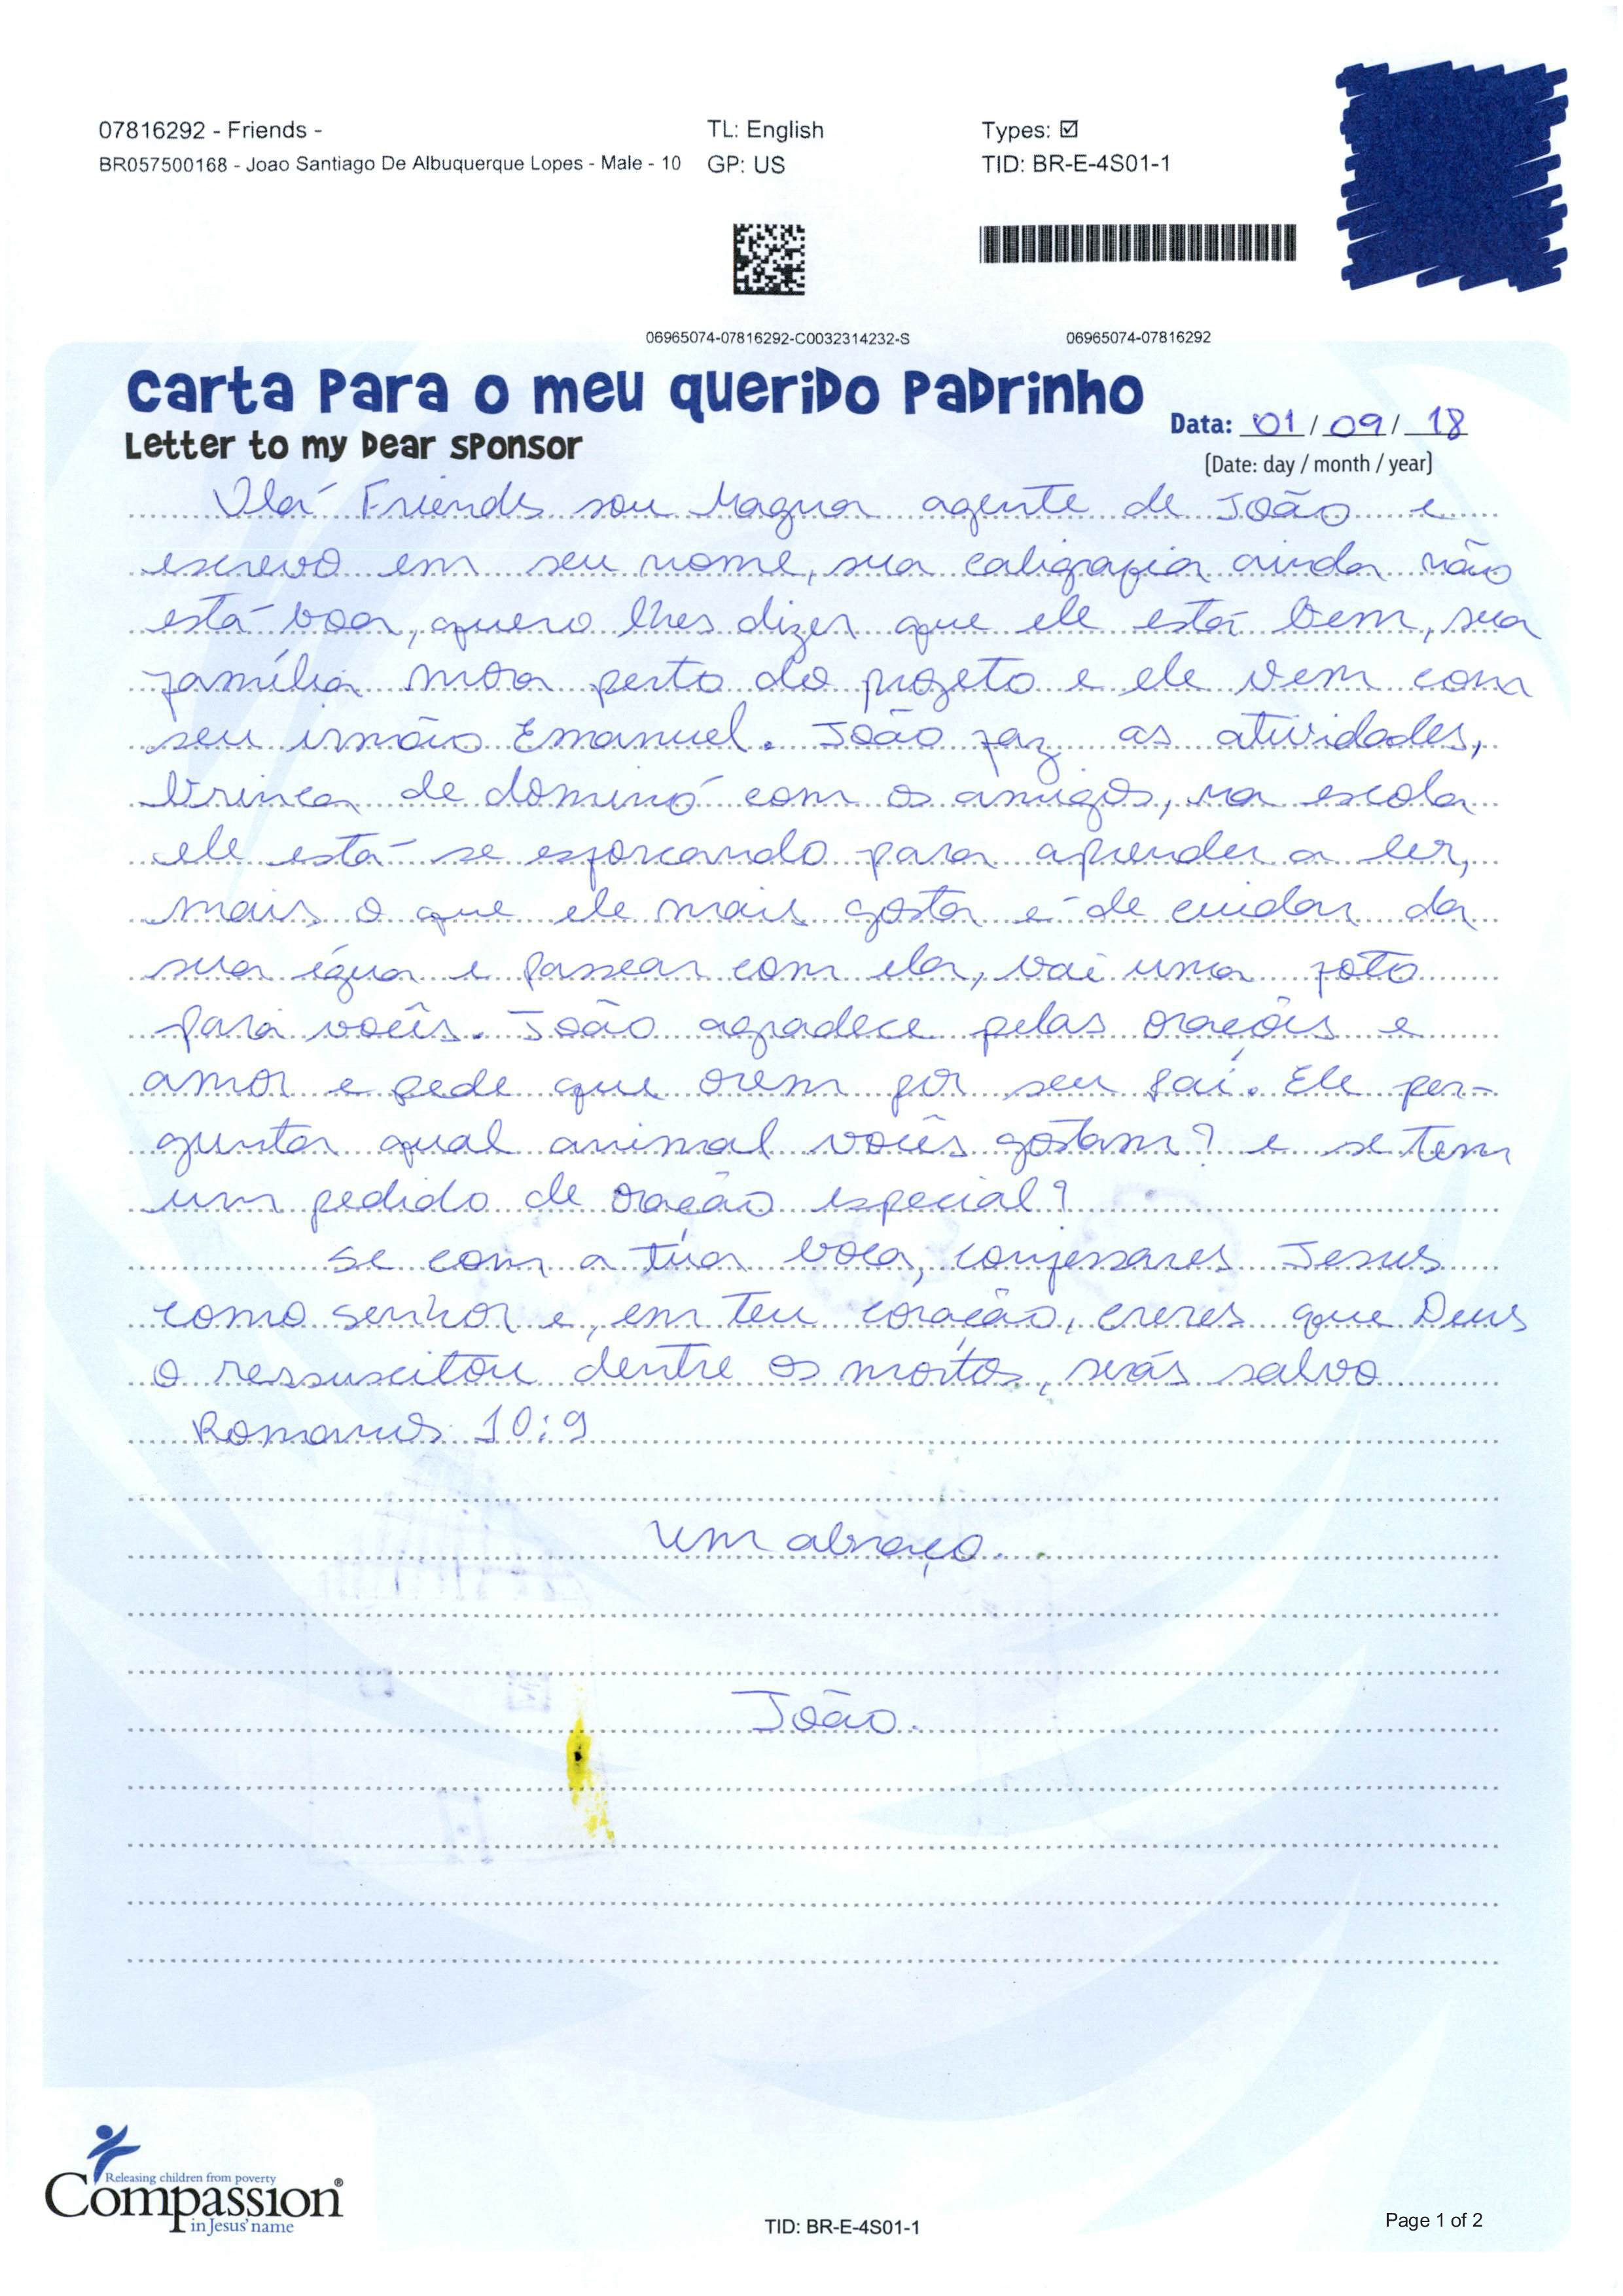 07816292 - Friends -
TL: English
Types: ☑
BR057500168 - Joao Santiago De Albuquerque Lopes - Male - 10
GP: US
TID: BR-E-4S01-1
06965074-07816292-C0032314232-S
06965074-07816292
Carta para o meu querido padrinho
Letter to my dear sponsor
Data: 01 / 09 / 18
(Date: day / month / year)
Olá Friends sou Magna agente de João e
escrevo em seu nome, sua caligrafia ainda não
está boa, quero lhes dizer que ele está bem, sua
família mora perto do projeto e ele vem com
seu irmão Emanuel. João faz as atividades,
brinca de dominó com os amigos, na escola
ele está se esforcando para aprender a ler,
mais o que ele mais gosta é de cuidar da
sua égua e passear com ela, vai uma foto
para vocês. João agradece pelas orações e
amor e pede que orem por seu pai. Ele per-
gunta qual animal vocês gostam? e se tem
um pedido de oração especial?
Se com a tua boca, confessares Jesus
como senhor e, em teu coração, creres que Deus
o ressuscitou dentre os mortos, serás salvo
Romanos 10:9
Um abraço.
João.
Releasing children from poverty
Compassion®
in Jesus' name
TID: BR-E-4S01-1
Page 1 of 2